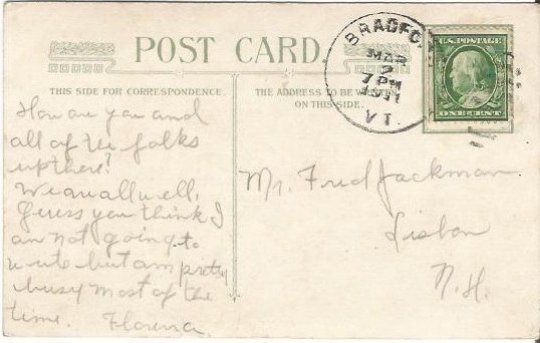 POST CARD.
THIS SIDE FOR CORRESPONDENCE
THE ADDRESS TO BE
ON THIS SIDE.
BRADFO
MAR
2
7 PM
1911
VT.
U.S. POSTAGE
ONE CENT
How are you and
all of the folks
up there?
We are all well,
Guess you think I
am not going to
write but am pretty
busy most of the
time.
Mr. Fred Jackman
Lisbon
N.H.